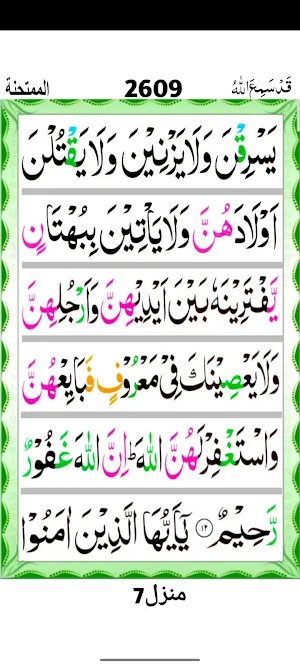 قَدْ سَمِعَ اللهُ 2609 الممتحنة
يَسْرِقْنَ وَلَا يَزْنِيْنَ وَلَا يَقْتُلْنَ
اَوْلَادَهُنَّ وَلَا يَاْتِيْنَ بِبُهْتَانٍ
يَّفْتَرِيْنَهٗ بَيْنَ اَيْدِيْهِنَّ وَاَرْجُلِهِنَّ
وَلَا يَعْصِيْنَكَ فِيْ مَعْرُوْفٍ فَبَايِعْهُنَّ
وَاسْتَغْفِرْ لَهُنَّ اللهَ ؕ اِنَّ اللهَ غَفُوْرٌ
رَّحِيْمٌ ﴿۱۲﴾ يٰۤاَيُّهَا الَّذِيْنَ اٰمَنُوْا
منزل7